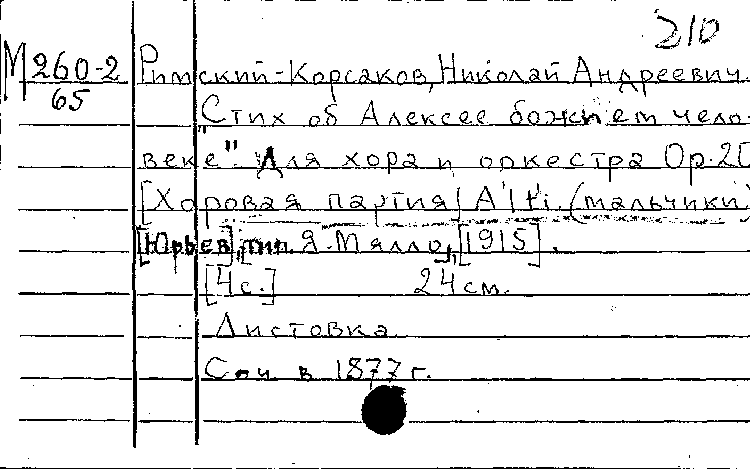 210
М 260-2
65
Римский-Корсаков, Николай Андреевич.
"Стих об Алексее божием чело-
веке". Для хора и оркестра Ор.20
[Хоровая партия] Alti. (мальчики)
[Юрьев], тип. Я. Мялло, [1915].
[4с.] 24 см.
Листовка
Соч в 1877 г.